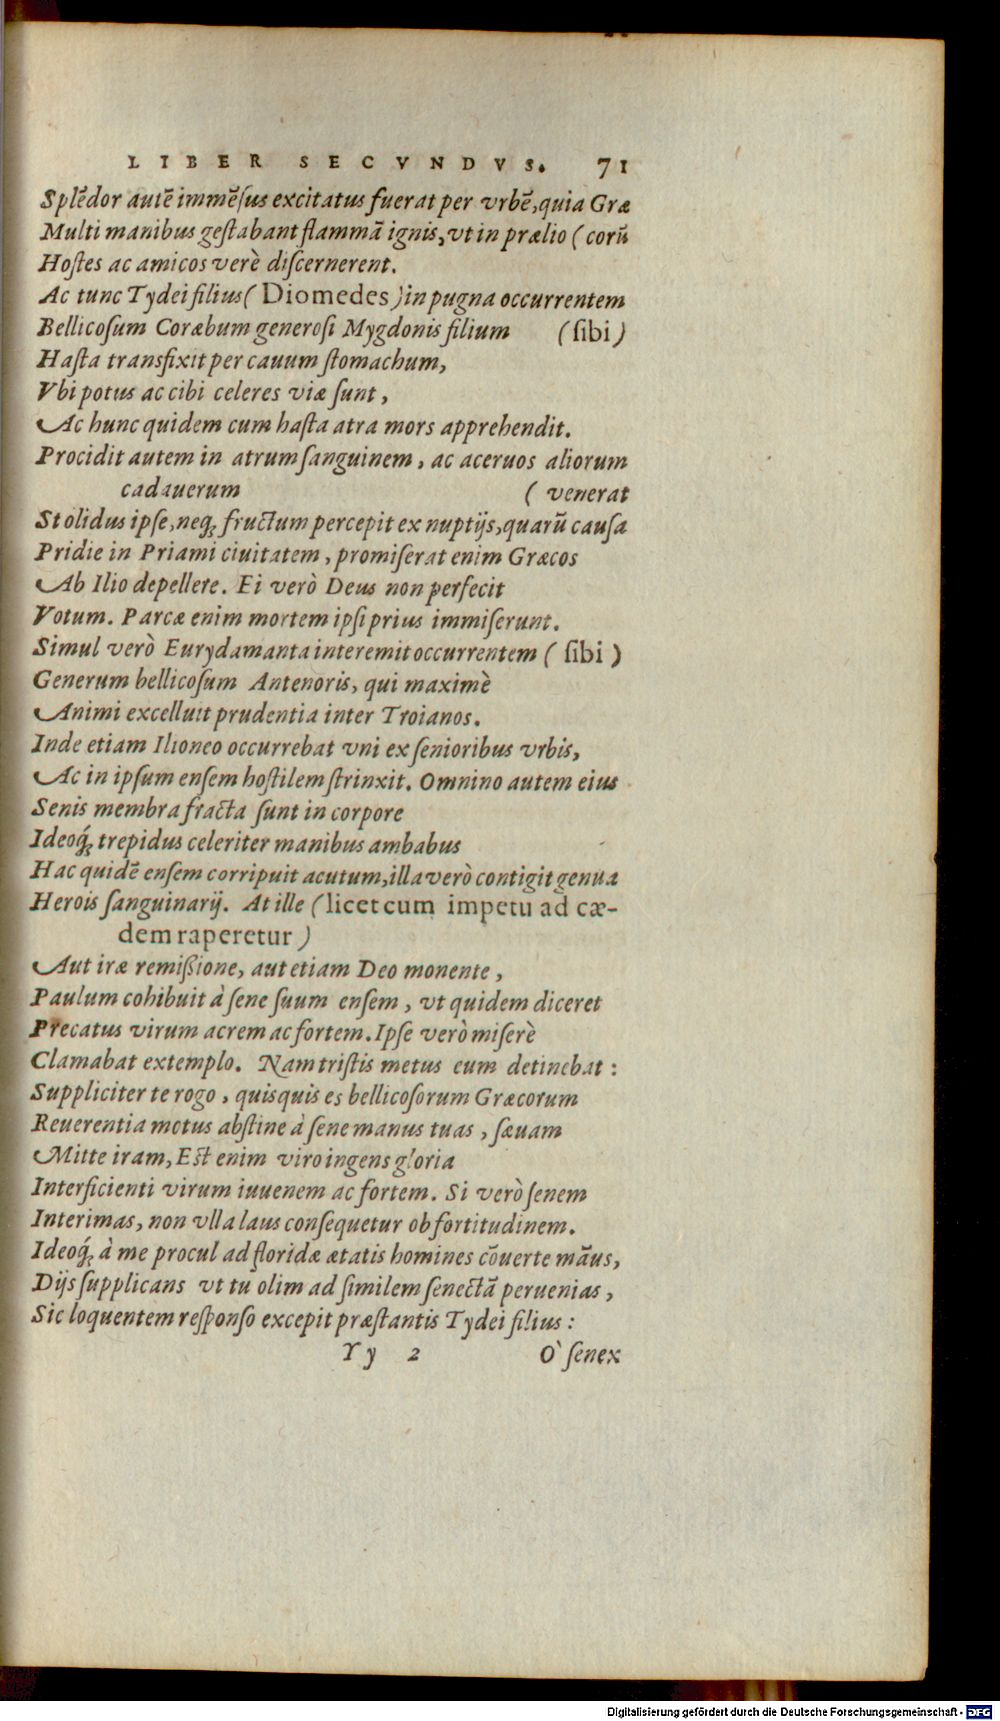 LIBER SECVNDVS. 71
Splẽdor autẽ immẽſus excitatus fuerat per vrbẽ, quia Græ
Multi manibus geſtabant flammã ignis, vt in prælio ( corũ
Hoſtes ac amicos verè diſcernerent.
Ac tunc Tydei filius ( Diomedes ) in pugna occurrentem
Bellicoſum Coræbum generoſi Mygdonis filium ( ſibi )
Haſta transfixit per cauum ſtomachum,
Vbi potus ac cibi celeres viæ ſunt,
Ac hunc quidem cum haſta atra mors apprehendit.
Procidit autem in atrum ſanguinem, ac aceruos aliorum
cadauerum ( venerat
Stolidus ipſe, neq; fructum percepit ex nuptijs, quarũ cauſa
Pridie in Priami ciuitatem, promiſerat enim Græcos
Ab Ilio depellere. Ei verò Deus non perfecit
Votum. Parcæ enim mortem ipſi prius immiſerunt.
Simul verò Eurydamanta interemit occurrentem ( ſibi )
Generum bellicoſum Antenoris, qui maximè
Animi excelluit prudentia inter Troianos.
Inde etiam Ilioneo occurrebat vni ex ſenioribus vrbis,
Ac in ipſum enſem hoſtilem ſtrinxit. Omnino autem eius
Senis membra fracta ſunt in corpore
Ideoq́; trepidus celeriter manibus ambabus
Hac quidẽ enſem corripuit acutum, illa verò contigit genua
Herois ſanguinarij. At ille ( licet cum impetu ad cæ-
dem raperetur )
Aut iræ remißione, aut etiam Deo monente,
Paulum cohibuit à ſene ſuum enſem, vt quidem diceret
Precatus virum acrem ac fortem. Ipſe verò miſerè
Clamabat extemplo. Nam triſtis metus eum detinebat :
Suppliciter te rogo, quisquis es bellicoſorum Græcorum
Reuerentia motus abſtine à ſene manus tuas, ſæuam
Mitte iram, Eſt enim viro ingens gloria
Interficienti virum iuuenem ac fortem. Si verò ſenem
Interimas, non vlla laus conſequetur ob fortitudinem.
Ideoq́; à me procul ad floridæ ætatis homines cõuerte mãus,
Dijs ſupplicans vt tu olim ad ſimilem ſenectã peruenias,
Sic loquentem reſponſo excepit præſtantis Tydei filius :
Yy 2 O` ſenex
Digitalisierung gefördert durch die Deutsche Forschungsgemeinschaft - DFG